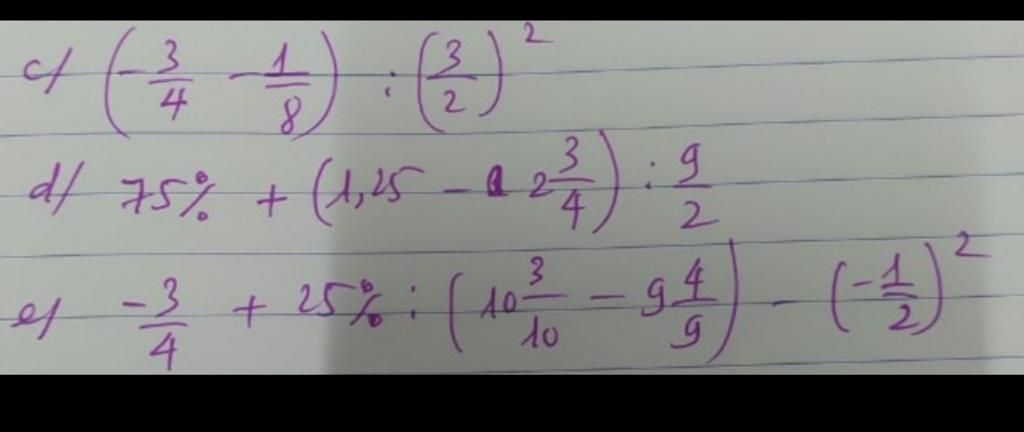 c/ (-3/4 - 1/8) : (3/2)²
d/ 75% + (1,25 - 2 3/4) : 9/2
e/ -3/4 + 25% : (10 3/10 - 9 4/9) - (-1/2)²